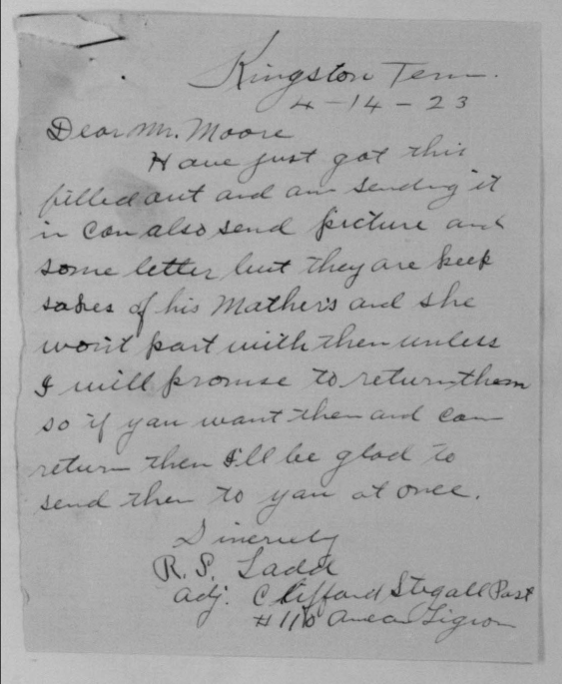 Kingston Tenn.
4-14-23
Dear Mr. Moore
Have just got this
filled out and am sending it
in Can also send picture and
some letter but they are keep
sakes of his Mother's and she
won't part with then unless
I will promise to return them
so if you want then and can
return then I'll be glad to
send then to you at once.
Sincerely
R. S. Ladd
adj. Clifford Stegall Post
# 116